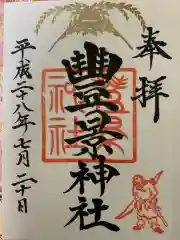 奉拝
豊景神社
平成二十八年七月二十日